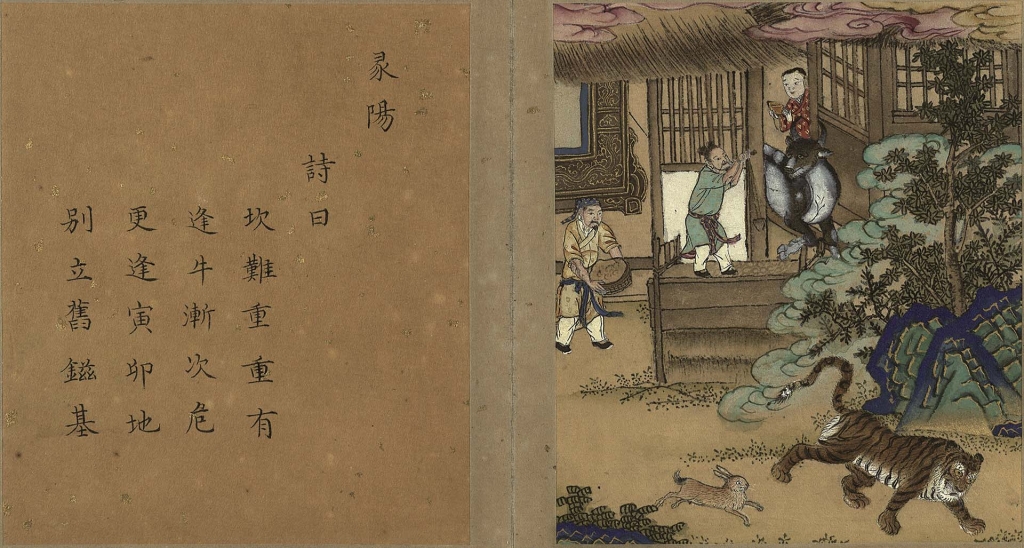 陽
詩曰
坎難重重有
逢牛漸次危
更逢寅卯地
別立舊鎡基